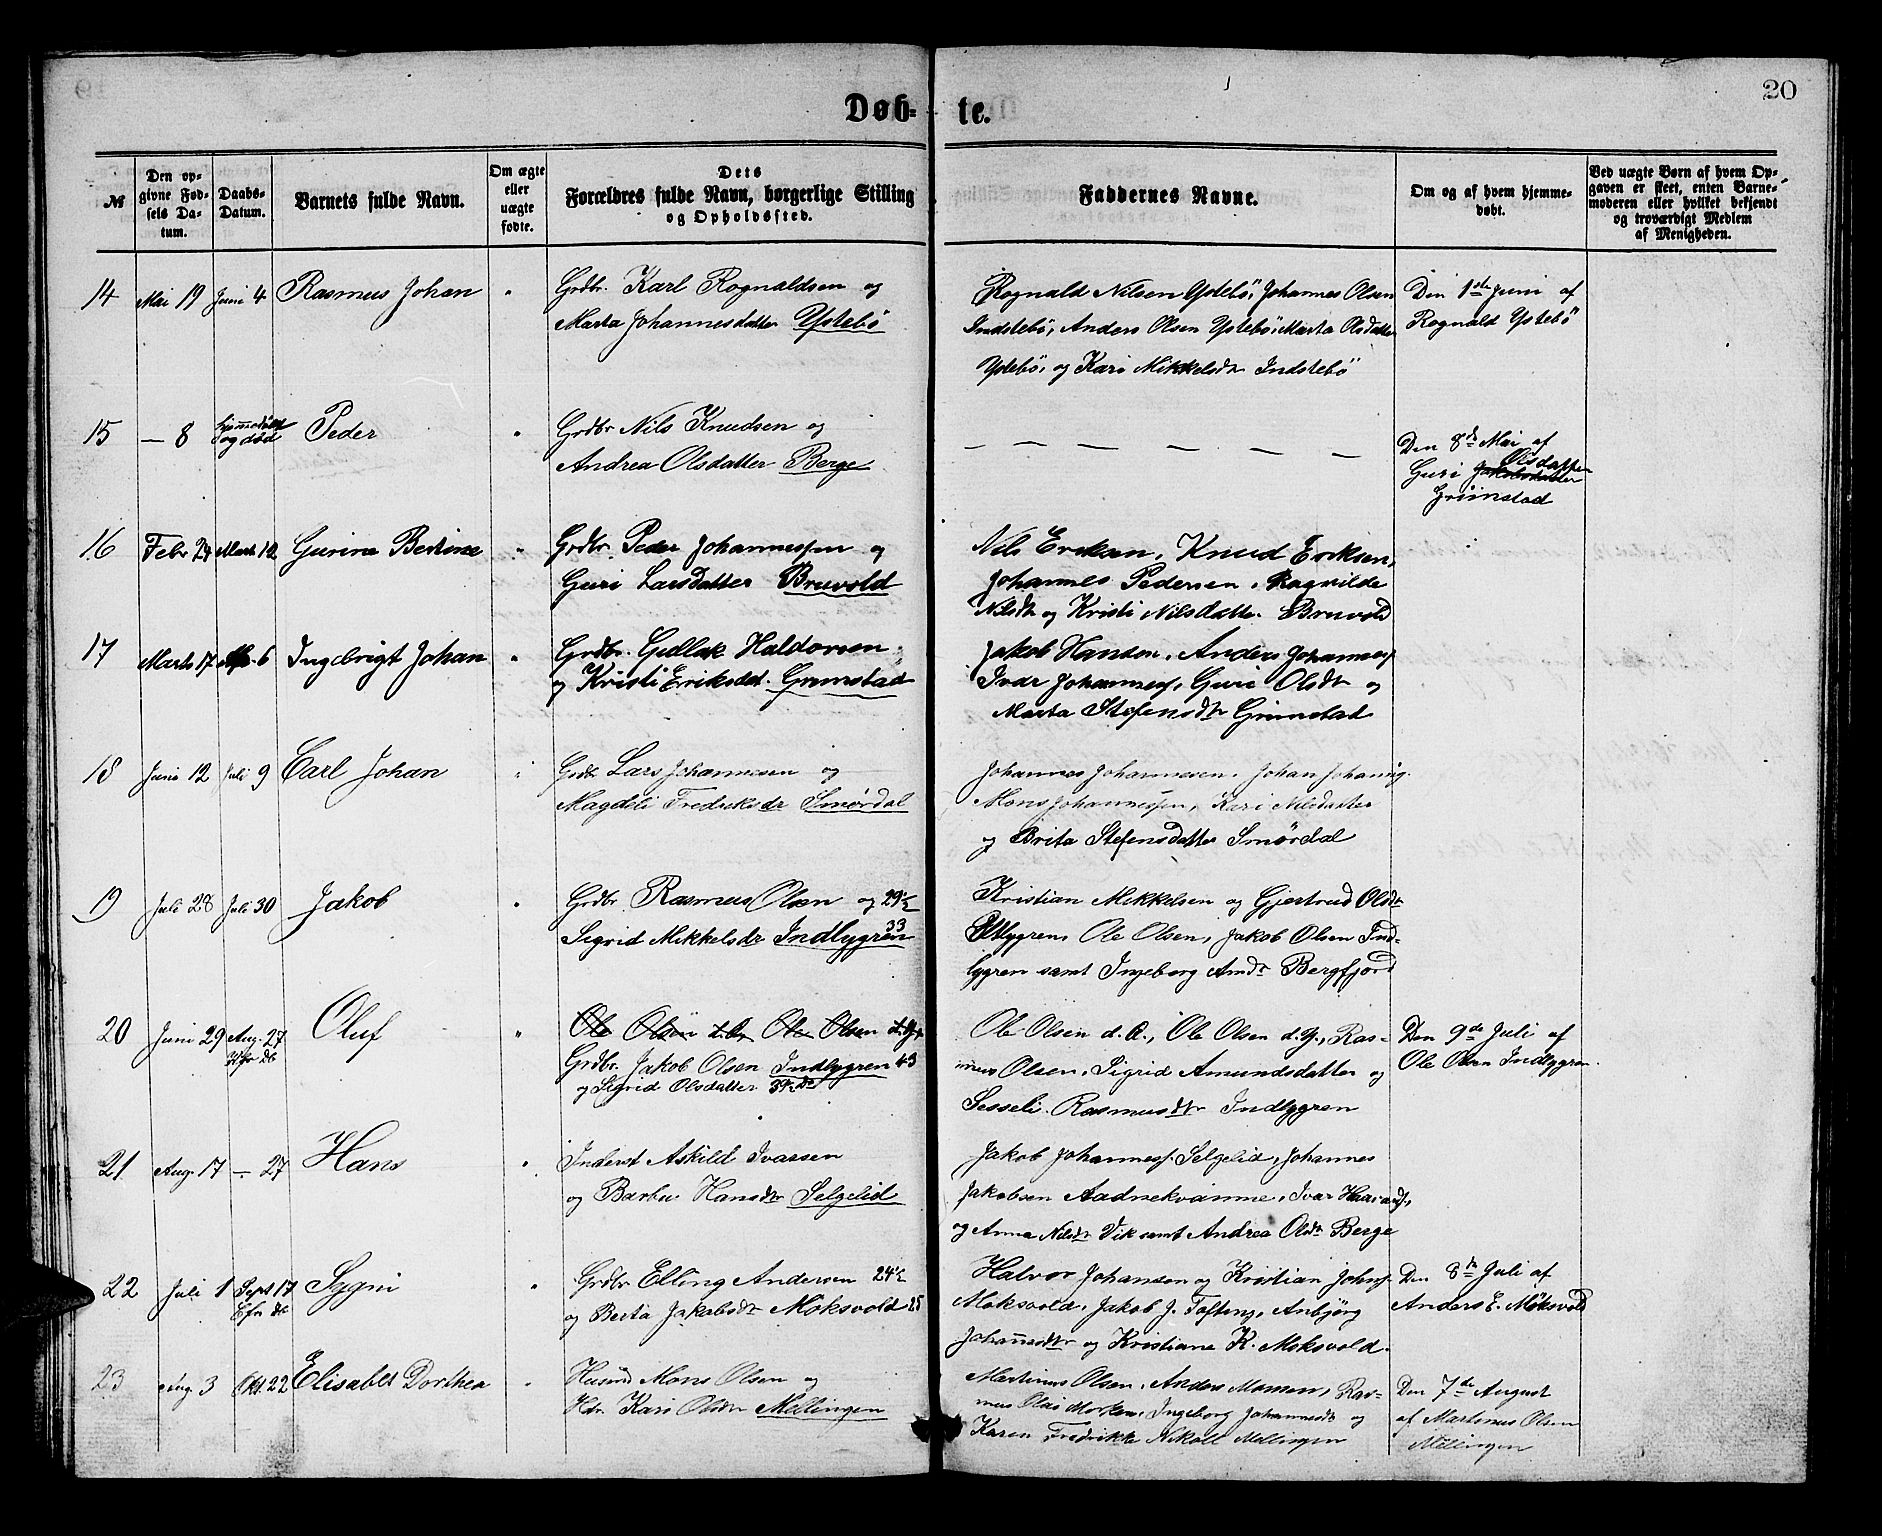 20
Døb-
te.
№
Den op-
givne Fød-
sels Da-
tum.
Daabs-
Datum.
Barnets fulde Navn.
Om ægte
eller
uægte
fødte.
Dets
Forældres fulde Navn, borgerlige Stilling
og Opholdssted.
Faddernes Navne.
Om og af hvem hjemme-
døbt.
Ved uægte Børn af hvem Op-
gaven er skeet, enten Barne-
moderen eller hvilket bekjendt
og troværdigt Medlem
af Menigheden.
14 Mai 19 Juni 4 Rasmus Johan "
Grdbr. Karl Rognaldsen og
Marta Johannesdatter Ystebö
Rognald Nilsen Ystebö, Johannes Olsen
Indstebö, Anders Olsen Ystebö, Marta Olsdatter
Ystebö, og Kari Mikkelsdtr Indstebö
Den 1ste Juni af
Rognald Ystebö
15 — 8 hjemmedöbt
og död Peder "
Grdbr Nils Knudsen og
Andrea Olsdatter Berge
— — — — — —
Den 8de Mai af
Olsdatter
Guri Jakobsdatter
Grimstad
16 Febr 24 Marts 12 Gurine Bertine "
Grdbr. Peder Johannessen og
Guri Larsdatter Bruvold
Nils Eriksen, Knud Eriksen,
Johannes Pedersen, Ragnilde
Nilsdtr og Kristi Nilsdatter Bruvold
17 Marts 17 Apr. 6 Ingebrigt Johan "
Grdbr. Gullak Haldorsen
og Kristi Eriksdat. Grimstad
Jakob Hansen, Anders Johannesf
Ivar Johannesf, Guri Olsdtr og
Marta Stefensdtr Grimstad
18 Juni 12 Juli 9 Carl Johan "
Grdbr Lars Johannesen og
Magdeli Fredriksdr Smördal
Johannes Johannesen, Johan
Mons Johannessen, Kari Nilsdatter
og Brita Stefensdatter Smördal
19 Juli 28 Juli 30 Jakob "
Grdbr Rasmus Olsen og 29½
Sigrid Mikkelsdr Indlygren 33
Kristian Mikkelsen og Gjertrud Olsdtr
Utlygren, Ole Olsen, Jakob Olsen Ind-
lygren samt Ingeborg Amdr Bergfjord
20 Juni 29 Aug. 27 Oluf "
Ole Olsen d. Æ, Ole Olsen d. Y.
Grdbr. Jakob Olsen Indlygren 43
og Sigrid Olsdatter
Ole Olsen d. Æ., Ole Olsen d. Y., Ras-
mus Olsen, Sigrid Amundsdatter og
Sesseli Rasmusdtr Indlygren
Den 9de Juli af
Ole Olsen Indlygren
21 Aug. 17 — 27 Hans "
Inderst Askild Ivarsen
og Barbu Hansdtr Selgelid
Jakob Johannesf. Selgelid, Johannes
Jakobsen Aadnekvamme, Ivar
og Anna Nilsdtr Vik samt Andrea Olsdtr Berge
22 Juli 1 Sept 17 Sygni "
Grdbr Elling Andersen 24½
og Berta Jakobsdtr Moksvold 25
Halvor Johansen og Kristian Johsf.
Moksvold, Jakob J. Tofting, Anbjörg
Johannesdtr og Kristiane K. Moksvold.
Den 8de Juli af
Anders E. Möksvold
23 Aug. 3 Okt. 22 Elisabet Dorthea "
Husmd Mons Olsen og
Hdr. Kari Olsdtr Mellingen
Martinus Olsen, Anders Monsen, Ras-
mus Olai Morken, Ingeborg Johannesdtr og
Karen Fredrikke Nikoll Mellingen
Den 7de August
af Martinus Olsen
Mellingen